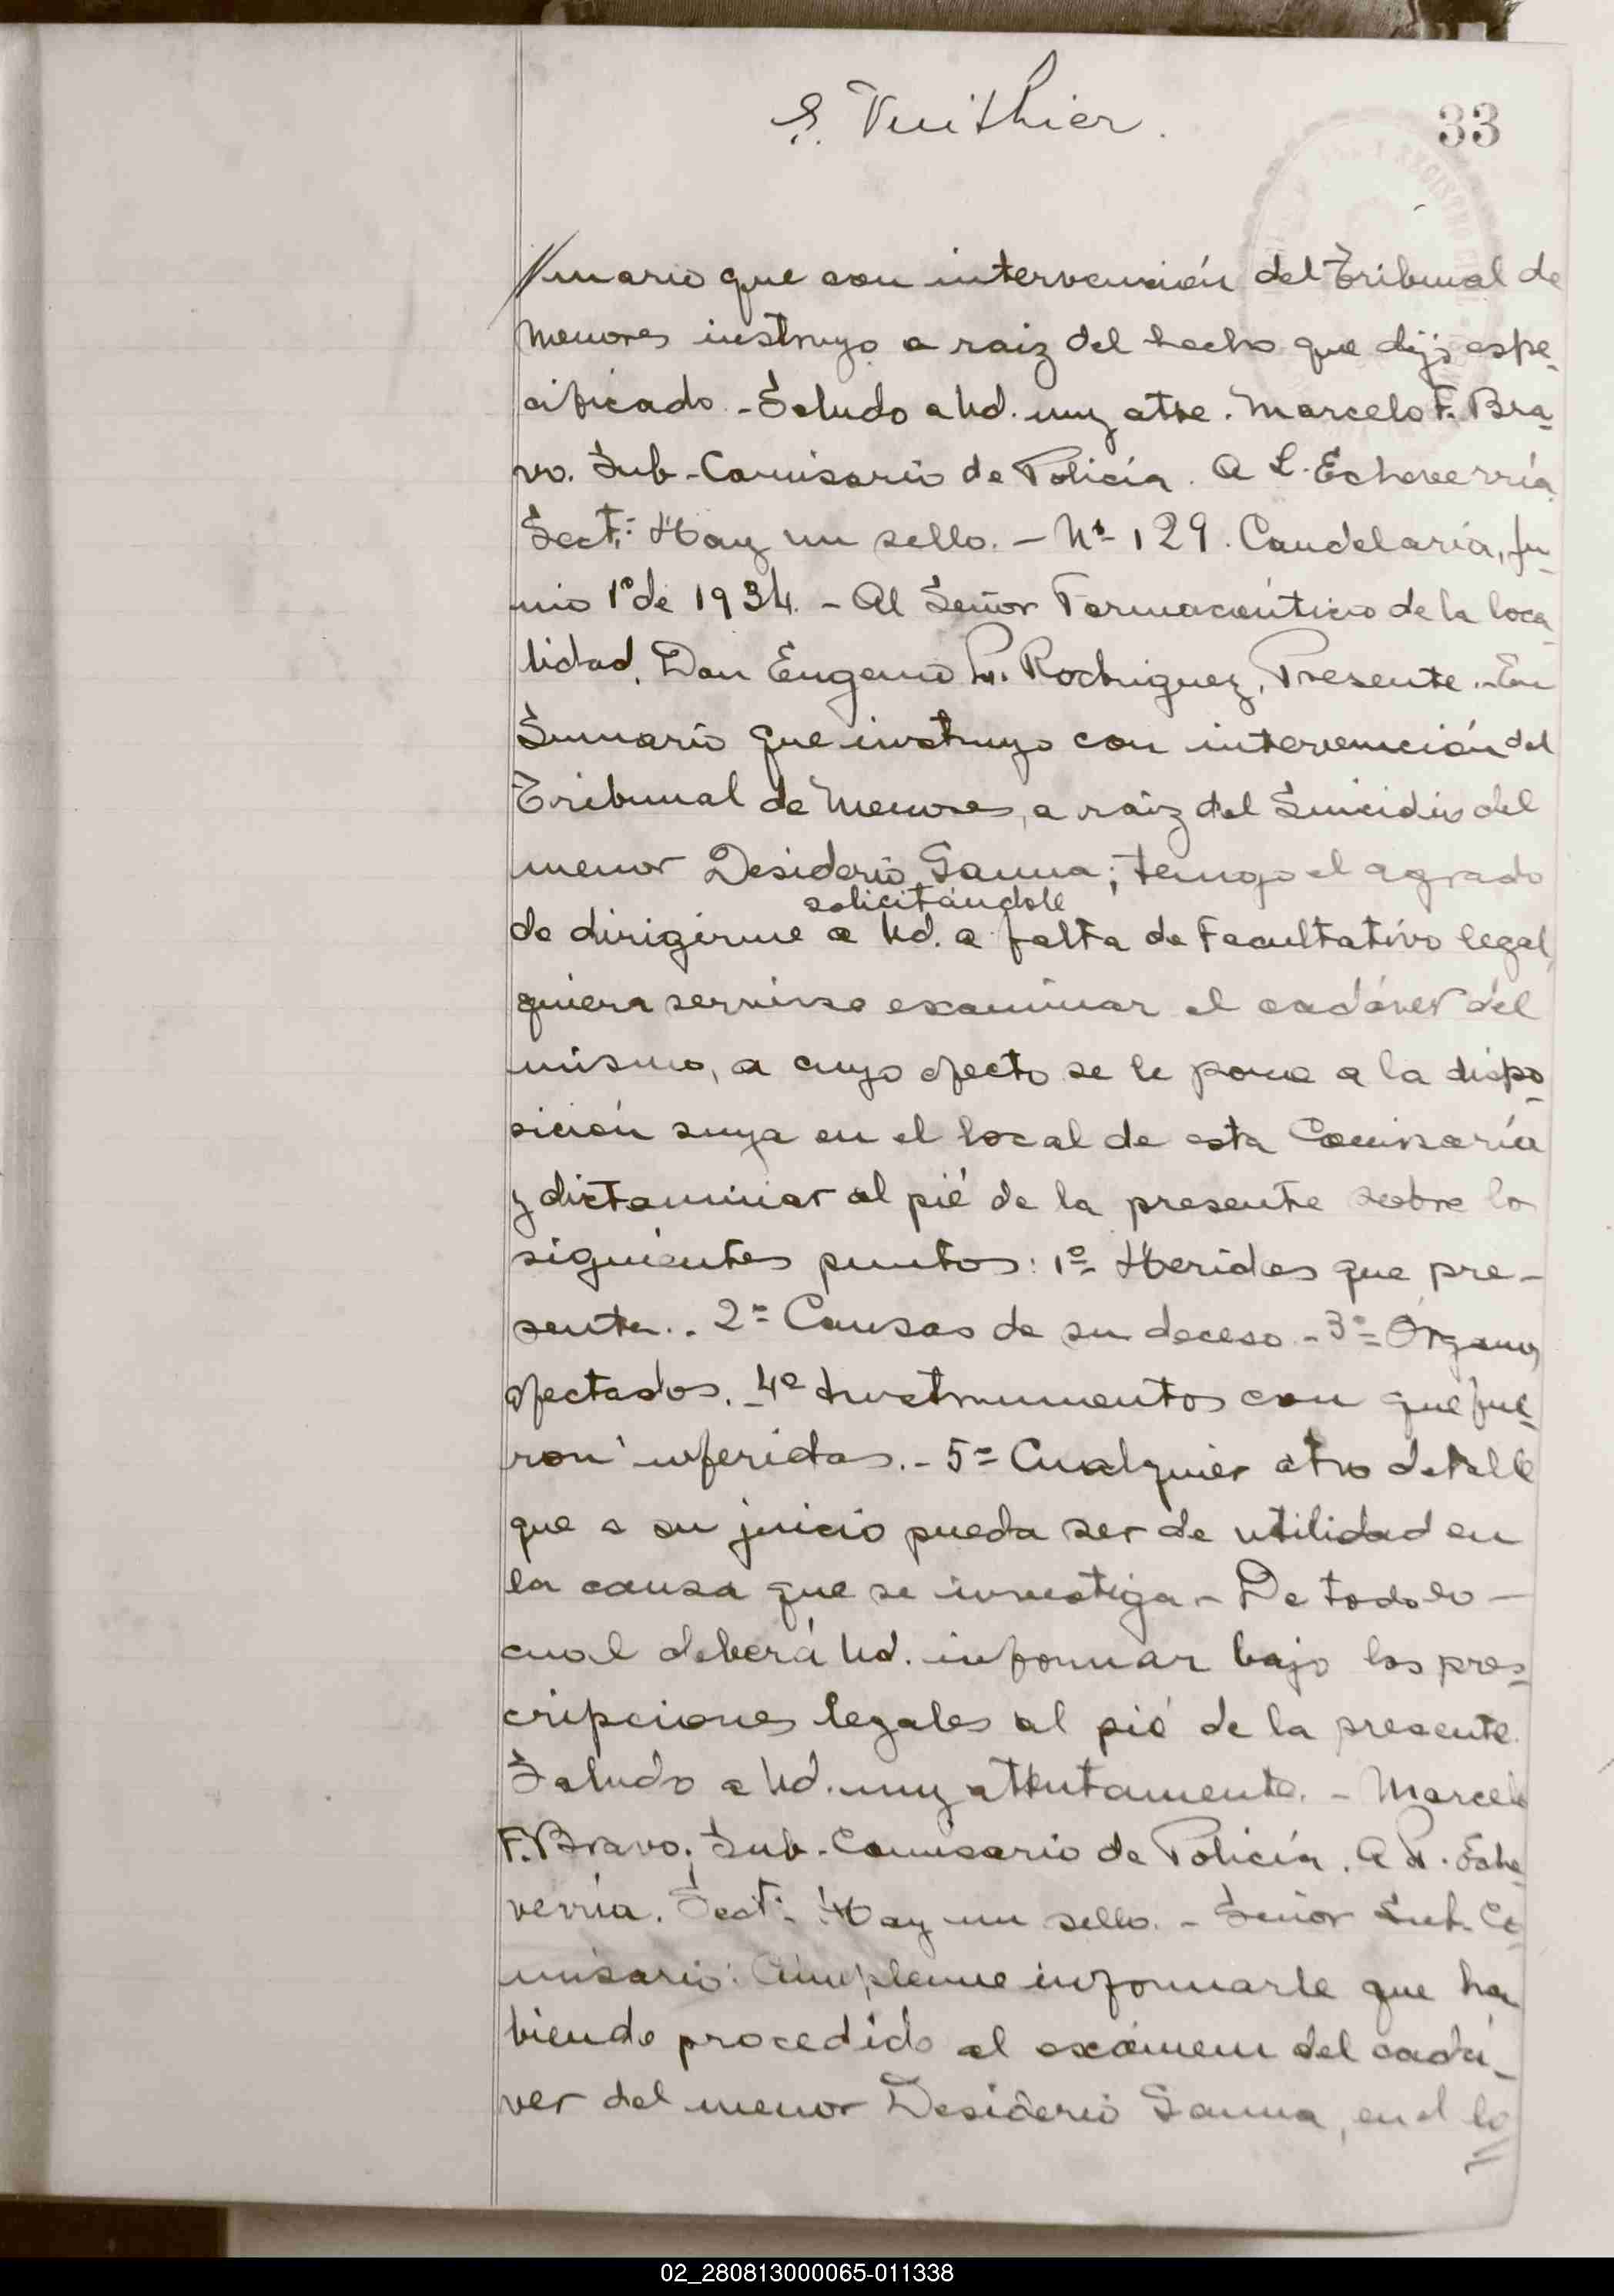 S. Vuithier.
33
//mario que con intervención del Tribunal de
Menores instruyo a raiz del hecho que dejo espe-
cificado. - Saludo a Ud. muy atte. Marcelo F. Bra-
vo. Sub-Comisario de Policía. A L. Echeverría
Sect: Hay un sello. - Nº 129. Candelaria, Ju-
nio 1º de 1934. - Al Señor Farmacéutico de la loca-
lidad, Don Eugenio Rodriguez, Presente. - En
Sumario que instruyo con intervención del
Tribunal de Menores, a raiz del Suicidio del
menor Desiderio Sanna; tengo el agrado
solicitándole
de dirigirme a Ud. a falta de Facultativo legal,
quiera servirse examinar el cadáver del
mismo, a cuyo efecto se le pone a la dispo-
sición suya en el local de esta Comisaría
y dictaminar al pié de la presente sobre lo
siguientes puntos: 1º Heridas que pre-
sente. - 2º Causas de su deceso. - 3º Órganos
afectados. - 4º Instrumentos con que fue-
ron inferidas. - 5º Cualquier otro detalle
que a su juicio pueda ser de utilidad en
la causa que se investiga - De todo lo -
cual deberá Ud. informar bajo las pres-
cripciones legales al pié de la presente.
Saludo a Ud. muy attentamente. - Marcelo
F. Bravo. Sub-Comisario de Policía. A L. Eche-
verría. Sect: Hay un sello. - Señor Sub-Co-
misario: Cúmpleme informarle que ha
biendo procedido al exámen del cadá-
ver del menor Desiderio Sanna, en el lo
02_280813000065-011338